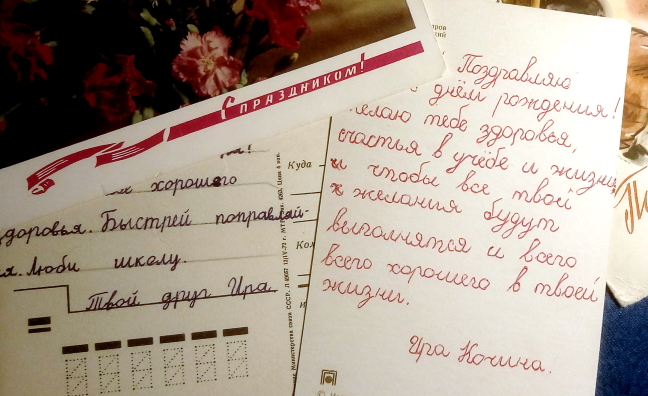 С ПРАЗДНИКОМ!
хорошего
здоровья. Быстрей поправляй-
я. Люби школу.
Твой друг Ира
Куда
Ком
Министерство связи СССР
Поздравляю
днём рождения!
желаю тебе здоровья,
счастья в учёбе и жизни,
и чтобы все твои
желания будут
выполнятся и всего
всего хорошего в твоей
жизни.
Ира Кочина.